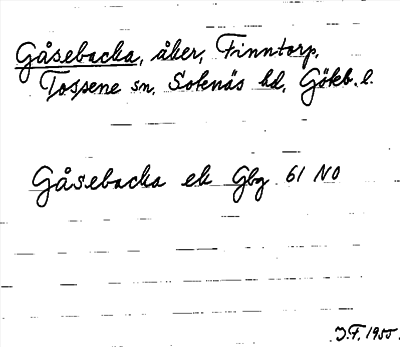 Gåsebacka, åker, Finntorp,
Tossene sn, Sotenäs hd, Götkb. l.
Gåsebacka ek Gbg 61 NO
J.F. 1955.